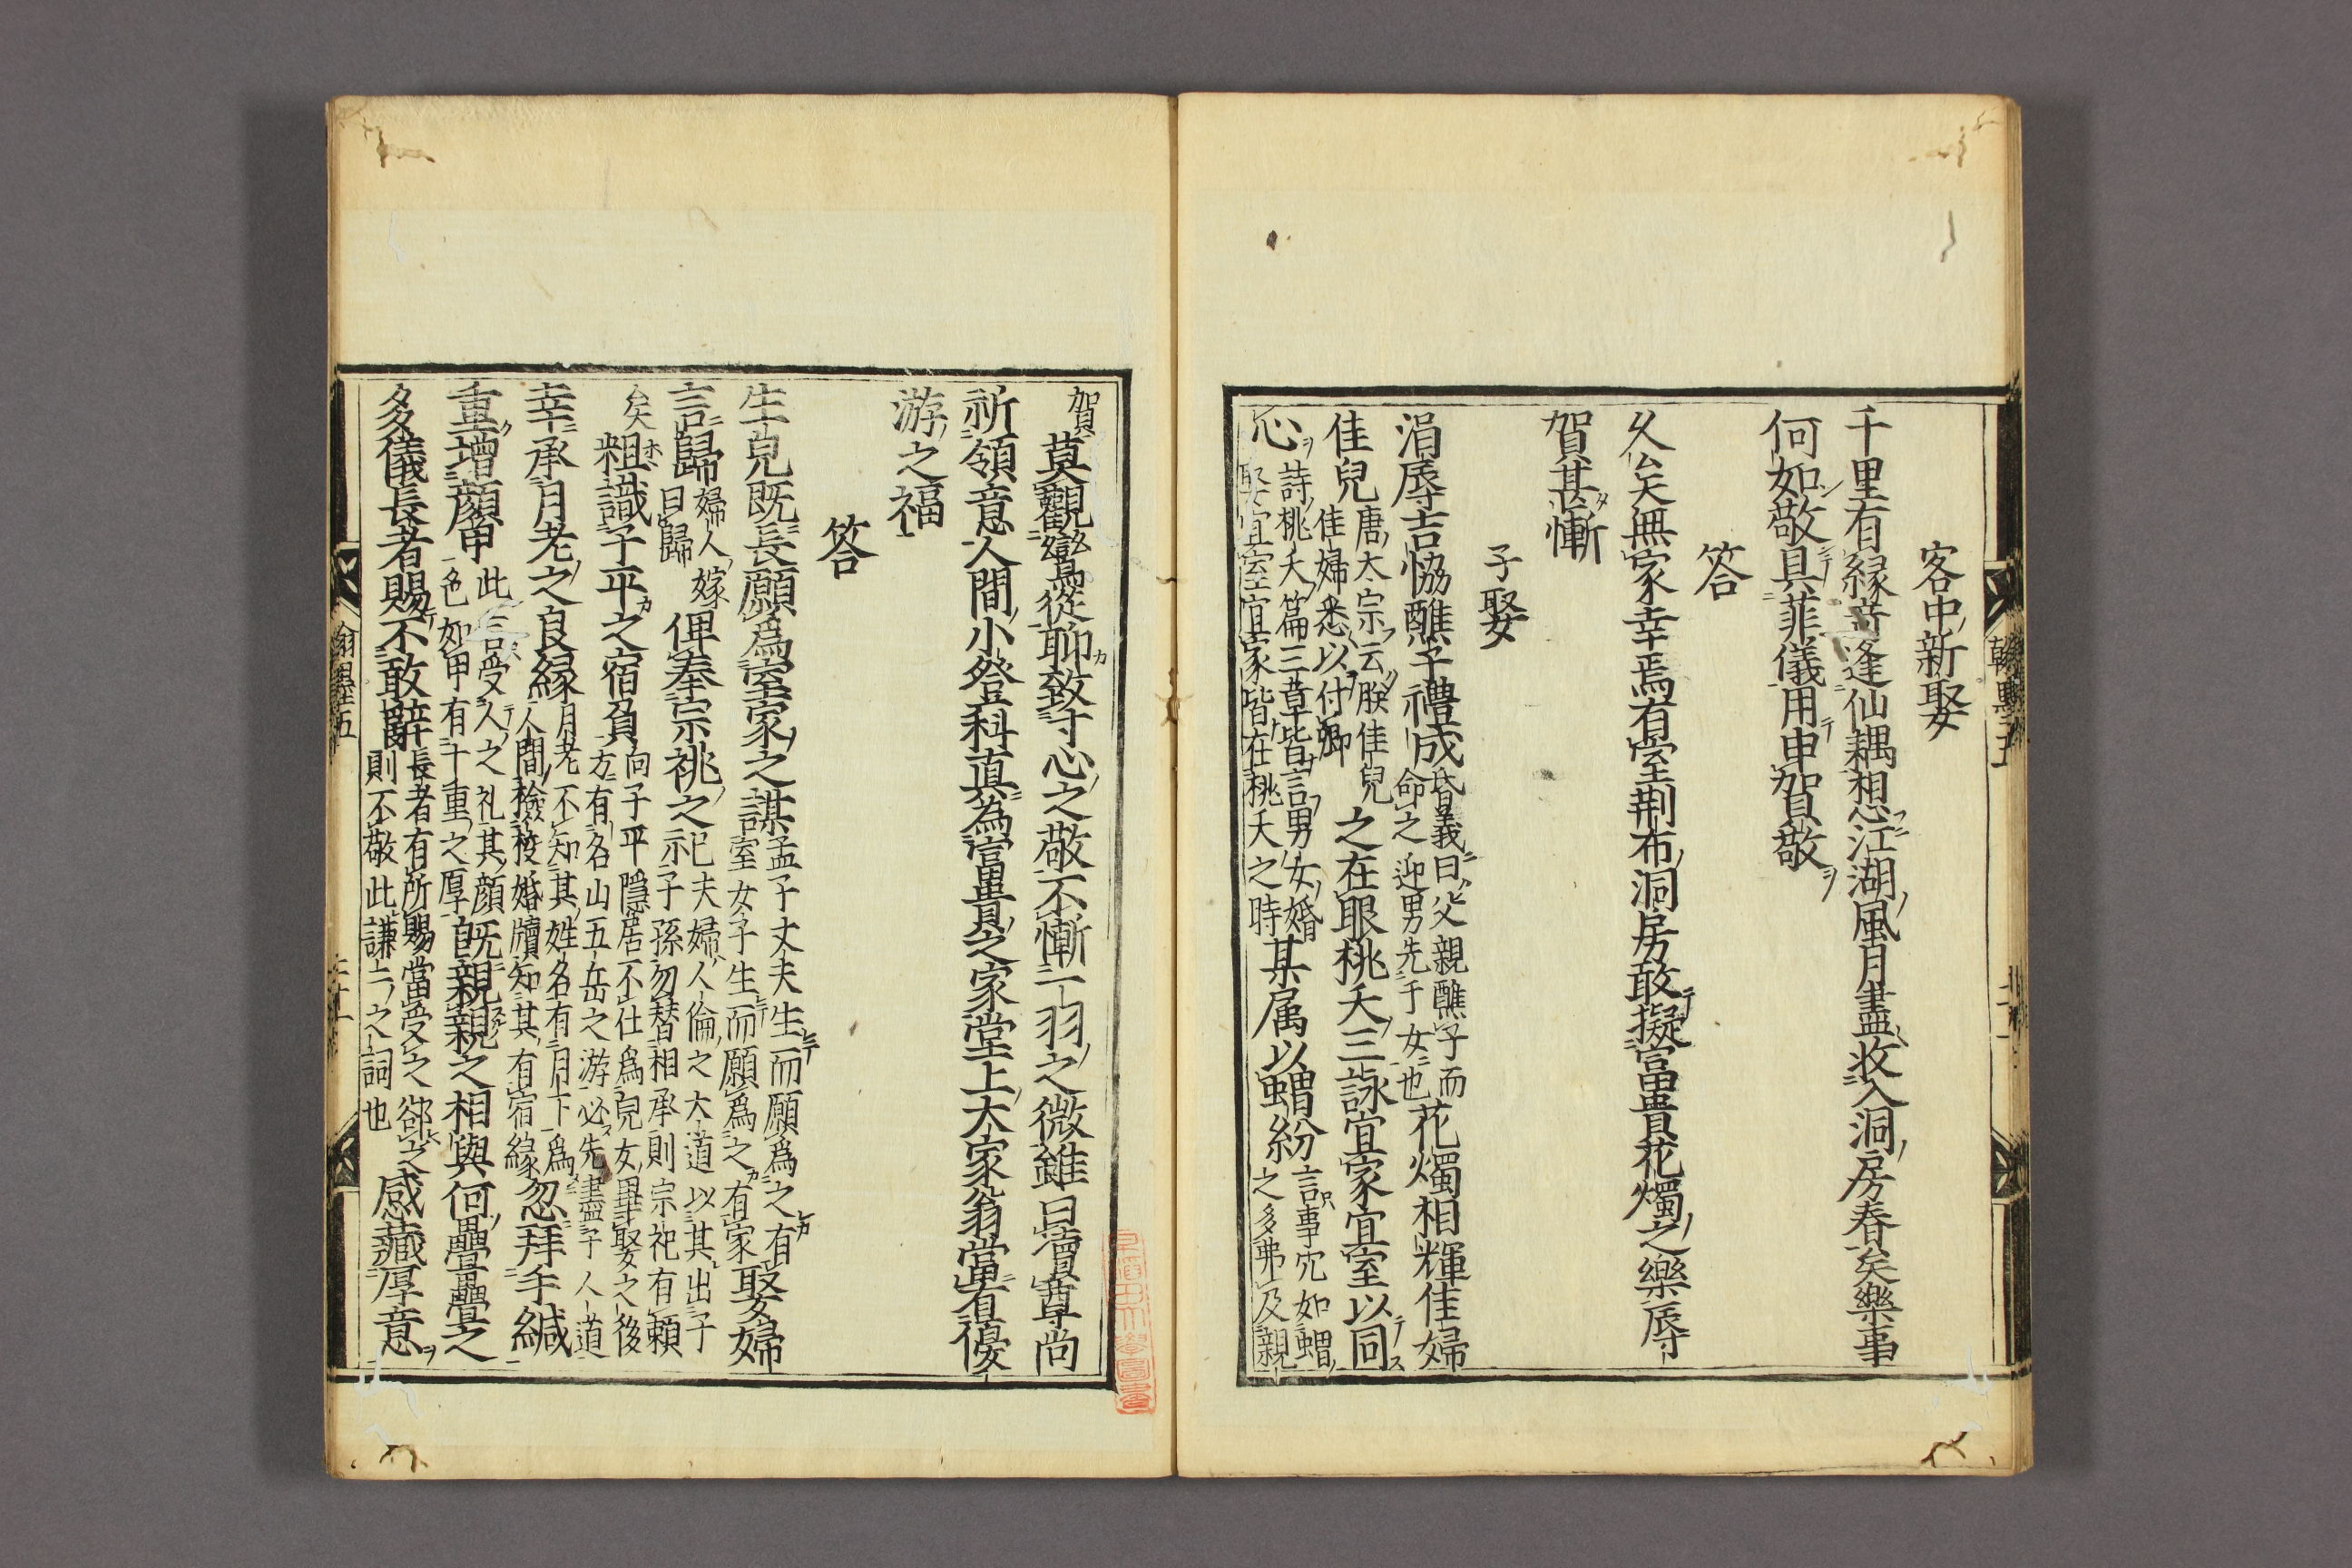 客中新娶
千里有緣竒逢仙耦想江湖風月盡收入洞房春矣樂事
何如敬具菲儀用申賀敬
答
久矣無家幸焉有室荆布洞房敢擬富貴花燭之樂辱
賀甚慚
子娶
涓辱吉恊醮子禮成
昏義曰父親醮子而
命之迎男先于女也
花燭相輝佳婦
佳兒
唐太宗云朕佳兒
佳婦悉以付卿
之在眼桃夭三詠宜家宜室以同
心
詩桃夭篇三章皆言男女婚
娶宜室宜家皆在桃夭之時
某属以蝟紛
言事冗如蝟
之多弗及親
賀莫觀鸞從聊致寸心之敬不慚一羽之微雖曰瀆尊尚
祈領意人間小登科真為富貴之家堂上大家翁當看優
游之福
答
生兒既長願爲室家之謀
孟子丈夫生而願爲之有
室女子生而願爲之有家
娶婦
言歸
婦人嫁
曰歸
俾奉宗祧之
祀夫婦人倫之大道以其出子
示子孫勿替相承則宗祀有賴
矣
粗識子平之宿負
向子平隱居不仕爲兒女畢娶之後
方有名山五岳之游必先盡子人道
幸承月老之良緣
月老不知其姓名有月下爲
人間檢校婚牘知其有宿緣
忽拜手緘
重增顔甲
此言受人之礼其顔既
色如甲有十重之厚
自親親之相與何疊疊之
多儀長者賜不敢辭
長者有所賜當受之郤之
則不敬此謙亡之詞也
感藏厚意
翰墨五
二十一